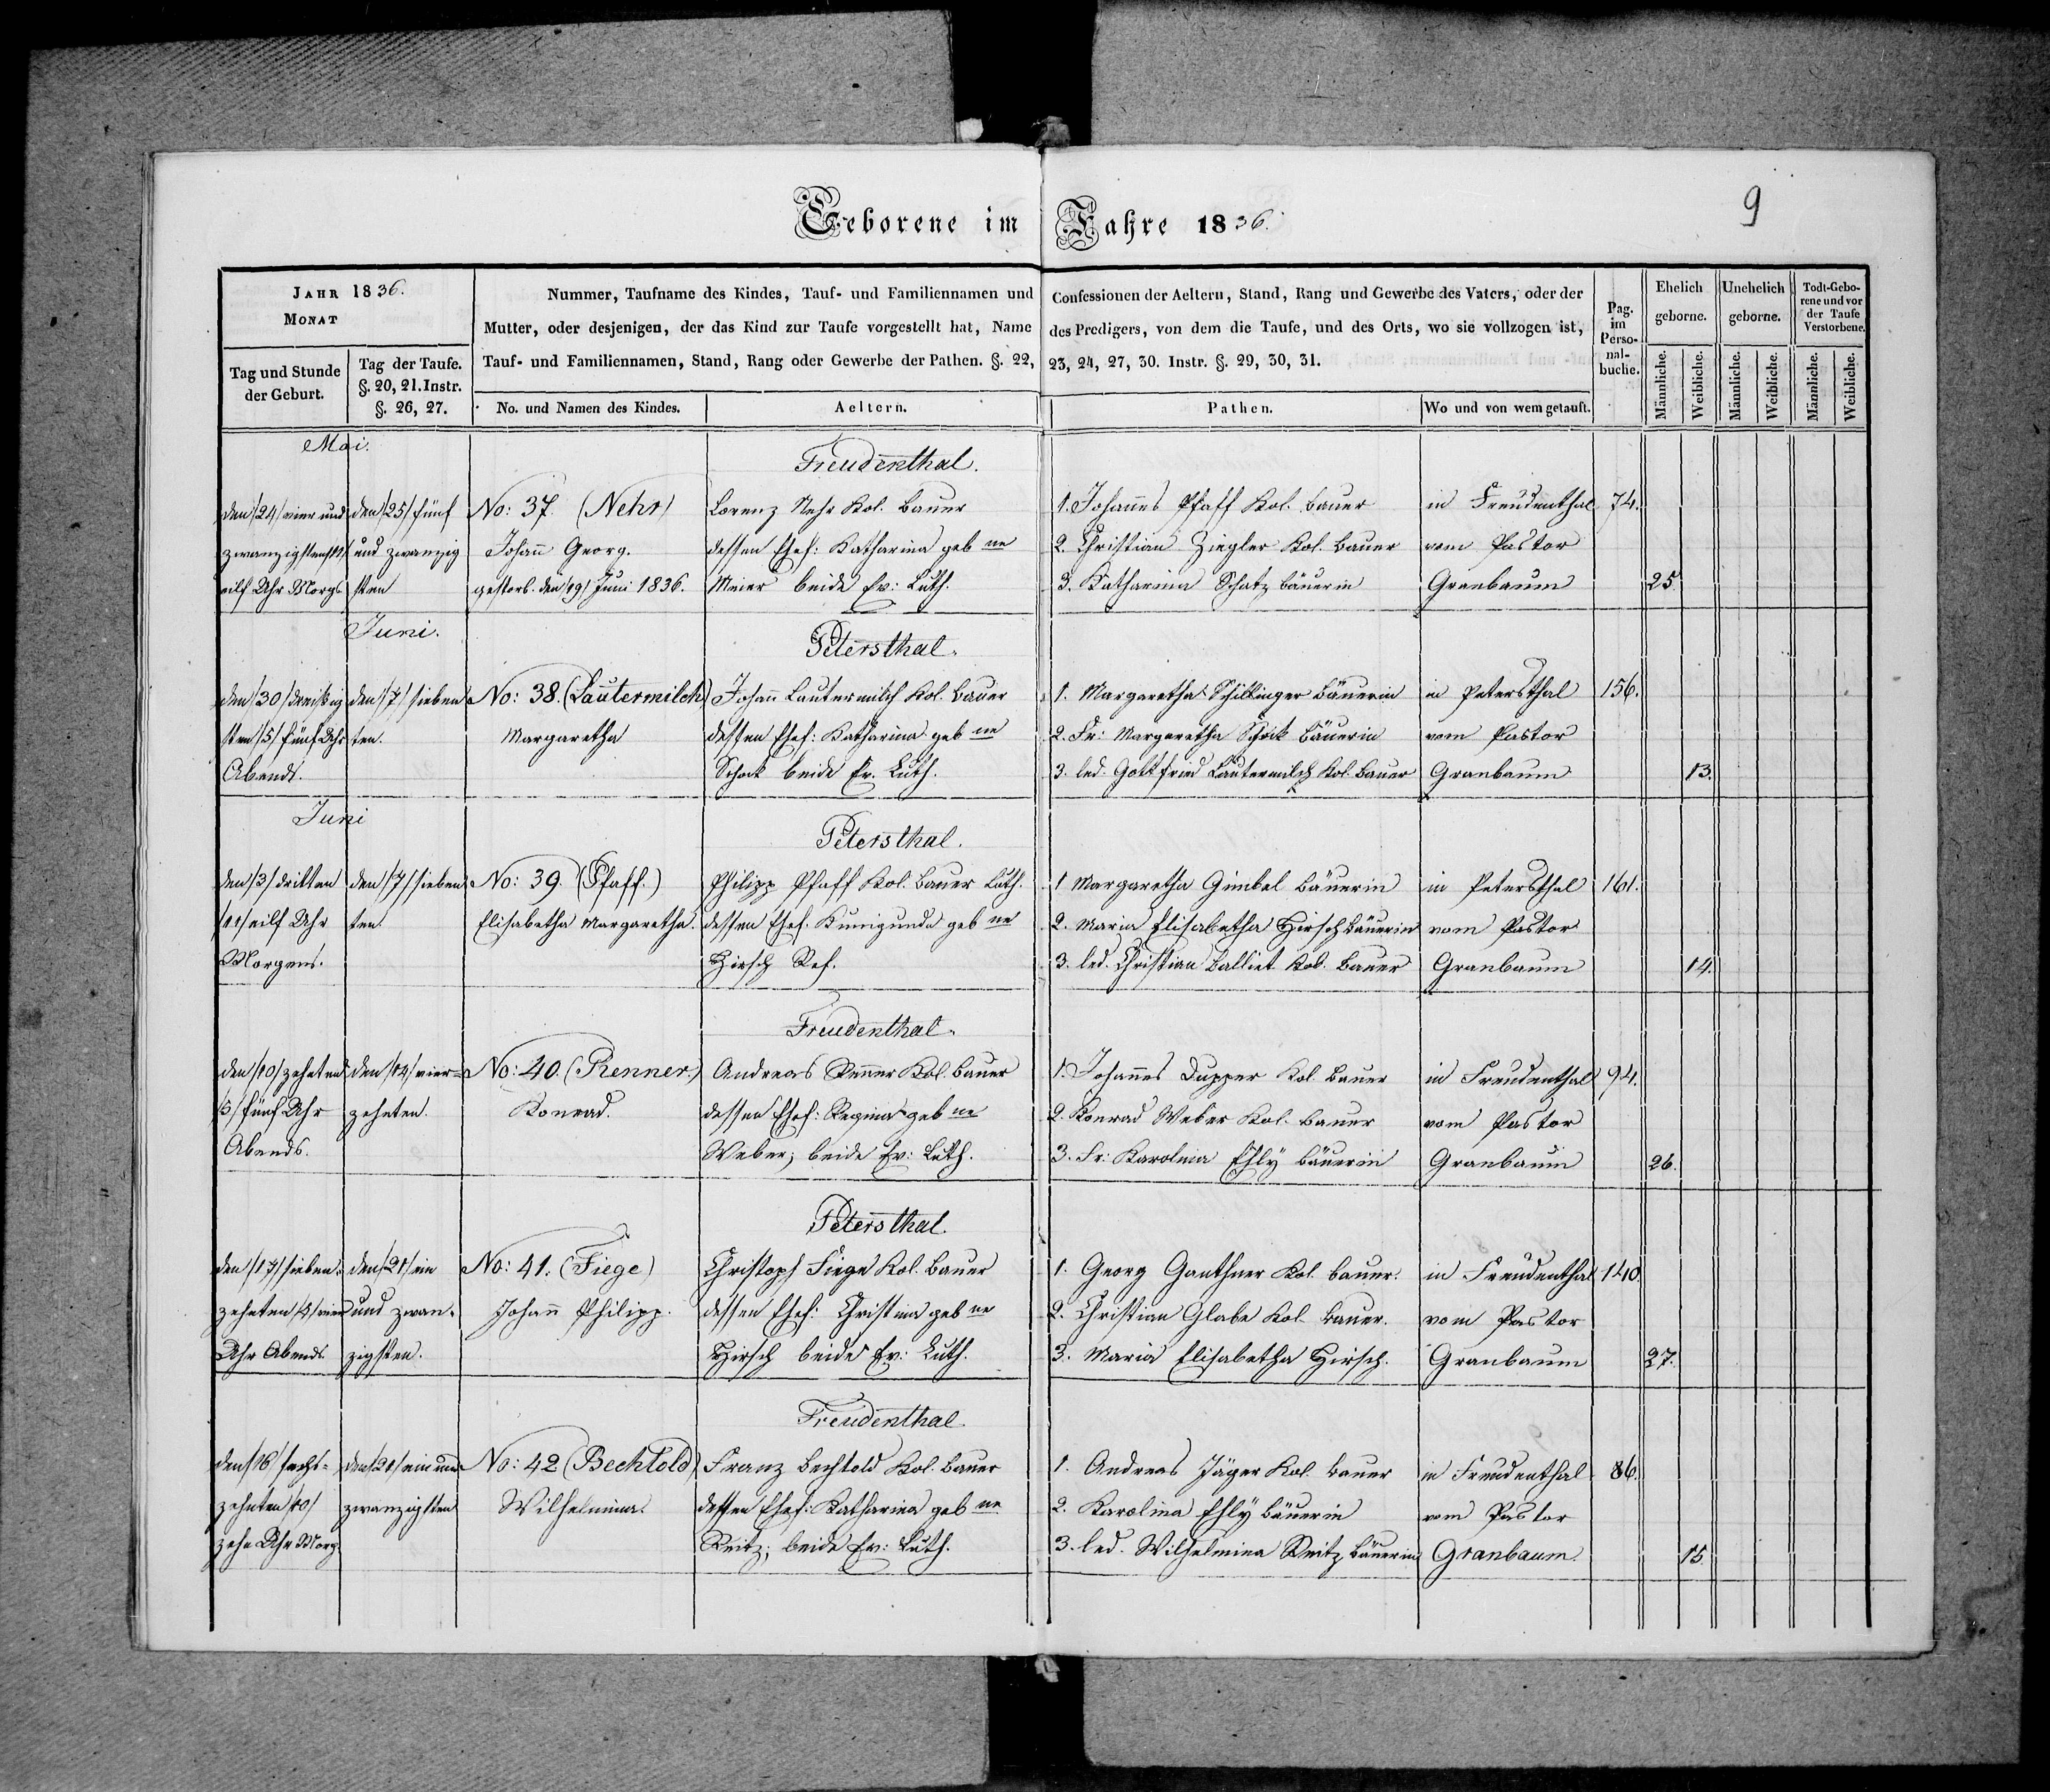 9
Geborene im Jahre 1836.
JAHR 1836.
MONAT
Tag und Stunde der Geburt.
Tag der Taufe. §. 20, 21. Instr. §. 26, 27.
Nummer, Taufname des Kindes, Tauf- und Familiennamen und Confessionen der Aeltern, Stand, Rang und Gewerbe des Vaters, oder der
Mutter, oder desjenigen, der das Kind zur Taufe vorgestellt hat, Name des Predigers, von dem die Taufe, und des Orts, wo sie vollzogen ist,
Tauf- und Familiennamen, Stand, Rang oder Gewerbe der Pathen. §. 22, 23, 24, 27, 30. Instr. §. 29, 30, 31.
No. und Namen des Kindes.
Aeltern.
Pathen.
Wo und von wem getauft.
Pag. im Perso-nal-buche.
Ehelich geborne.
Unehelich geborne.
Todt-Gebo-rene und vor der Taufe Verstorbene.
Männliche. Weibliche. Männliche. Weibliche. Männliche. Weibliche.
Mai.
Freudenthal.
den /24/ vier und den /25/ fünf No: 37. (Nehr) Lorenz Nehr Kol. Bauer 1. Johannes Pfaff Kol. Bauer in Freudenthal 74.
zwanzigsten /11/ und zwanzig Johann Georg. dessen Ehef: Katharina geb ne 2. Christian Ziegler Kol. Bauer vom Pastor
eilf Uhr Morgs sten gestorb. den /19/ Juni 1836. Maier beide Ev: Luth. 3. Katharina Schatz Bäuerin Granbaum 25.
Juni.
Petersthal.
den /30/ dreißig den /7/ sieben No: 38. (Lautermilch) Johann Lautermilch Kol. Bauer 1. Margaretha Schillinger Bäuerin in Petersthal 156.
sten /5/ fünf Uhr ten. Margaretha dessen Ehef: Katharina geb ne 2. Fr: Margaretha Schock Bäuerin vom Pastor
Abends. Schock beide Ev. Luth. 3. led. Gottfried Lautermilch Kol. Bauer Granbaum 13.
Juni
Petersthal.
den /3/ dritten den /7/ sieben No: 39. (Pfaff.) Philipp Pfaff Kol. Bauer Luth. 1 Margaretha Gimbel Bäuerin in Petersthal 161.
/11/ eilf Uhr ten. Elisabetha Margaretha. dessen Ehef. Kunigunda geb ne 2. Maria Elisabetha Hirsch Bäuerin vom Pastor
Morgens. Hirsch Ref. 3. led. Christian Balliet Kol. Bauer Granbaum 14.
Freudenthal.
den /10/ zehnten den /14/ vier= No: 40. (Renner) Andreas Renner Kol. Bauer 1. Johannes Dupper Kol. Bauer in Freudenthal 94.
/5/ fünf Uhr zehnten. Konrad. dessen Ehef: Regina geb ne 2. Konrad Weber Kol. Bauer vom Pastor
Abends. Weber; beide Ev: Luth. 3. Fr: Karolina Ehly Bäuerin Granbaum 26.
Petersthal.
den /17/ sieben= den /21/ ein No: 41. (Fiege) Christoph Fiege Kol. Bauer 1. Georg Ganthner Kol. Bauer. in Freudenthal 140.
zehnten /4/ vier und zwan= Johann Philipp. dessen Ehef: Christina geb ne 2. Christian Glabe Kol. Bauer. vom Pastor
Uhr Abends. zigsten. Hirsch beide Ev: Luth. 3. Maria Elisabetha Hirsch. Granbaum 27.
Freudenthal.
den /16/ sechs= den /21/ ein und No: 42 (Bechtold) Franz Bechtold Kol. Bauer 1. Andreas Jäger Kol. Bauer in Freudenthal 86.
zehnten /10/ zwanzigsten Wilhelmina. dessen Ehef: Katharina geb ne 2. Karolina Ehly Bäuerin vom Pastor
zehn Uhr Morg. Reitz; beide Ev: Luth. 3. led. Wilhelmina Reitz Bäuerin Granbaum. 15